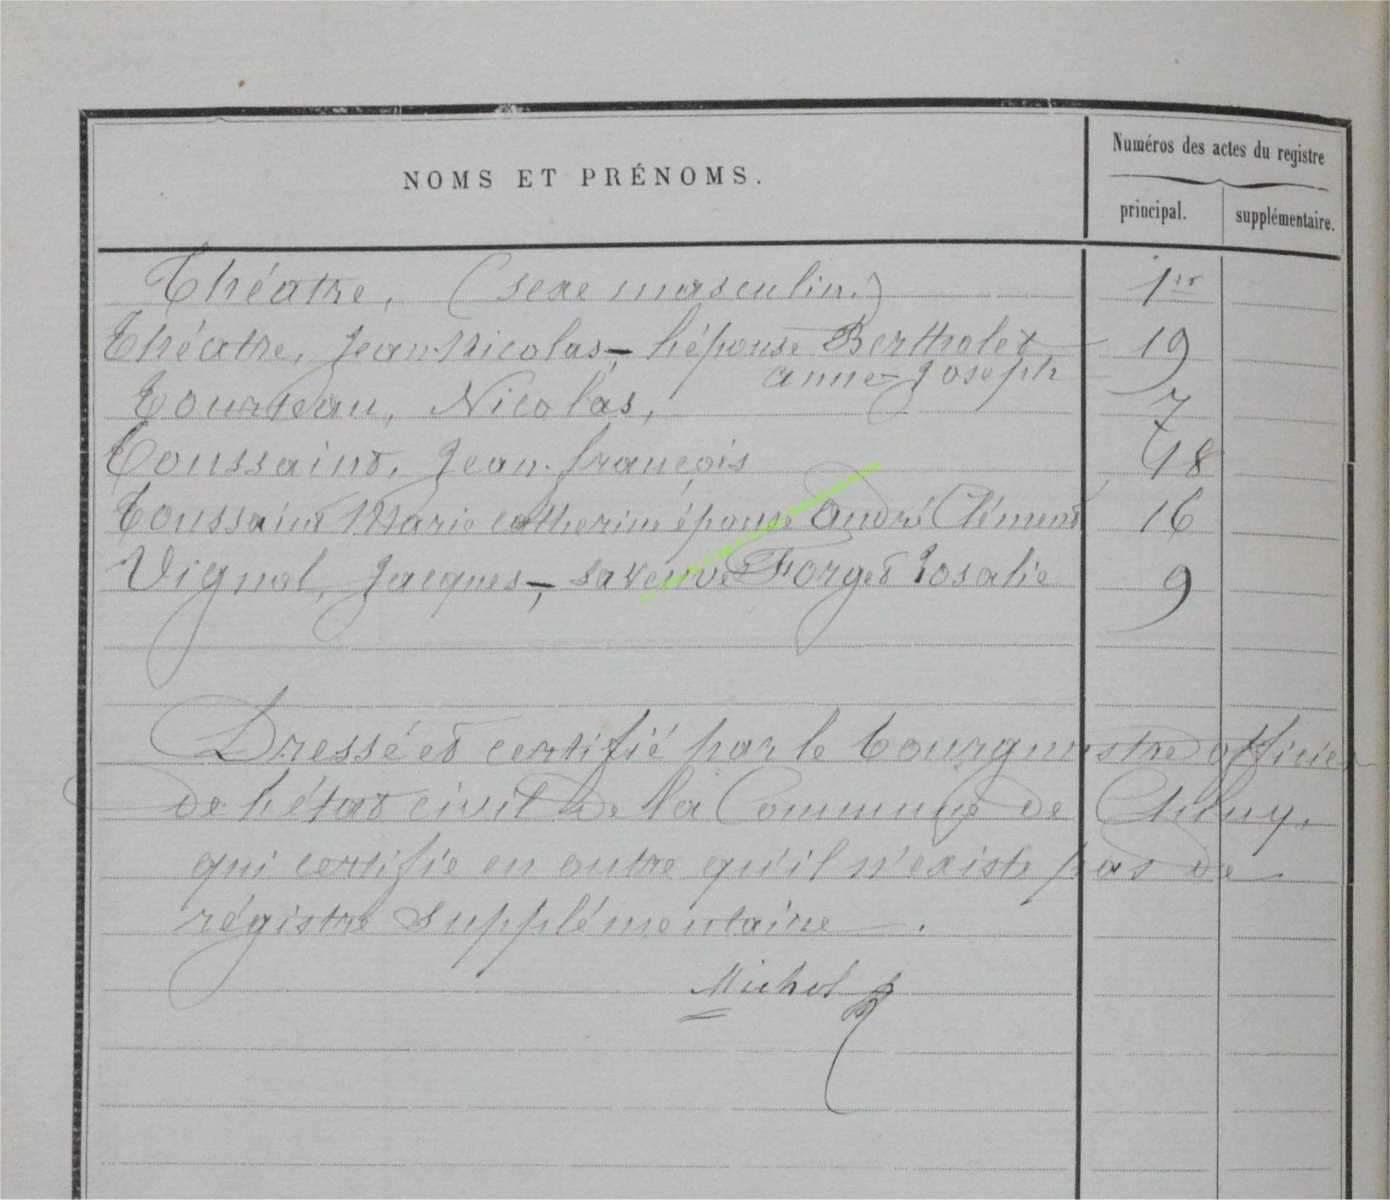 NOMS ET PRÉNOMS.
Numéros des actes du registre
principal. supplémentaire.
Théatre, (sexe masculin.) 1er
Théatre, Jean Nicolas, – l'épouse Bertholet 19
anne-Joseph
Tourteau, Nicolas, 7
Toussaint, Jean-françois 18
Toussaint Marie catherine épouse André Clément 16
Vignol, Jacques, – sa veuve Forget Rosalie 9
Dressé et certifié par le bourgmestre officier
de l'état civil de la Commune de Chiny,
qui certifie en outre qu'il n'existe pas de
régistre supplémentaire.
Michel